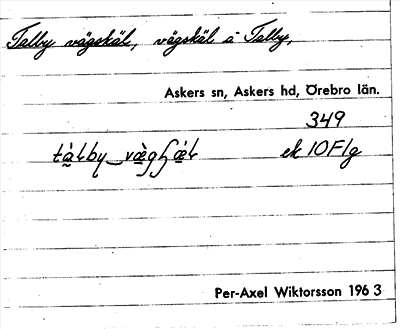 Talby vägskäl, vägskäl å Talby,
Askers sn, Askers hd, Örebro län.
349
ek 10F1g
Per-Axel Wiktorsson 1963